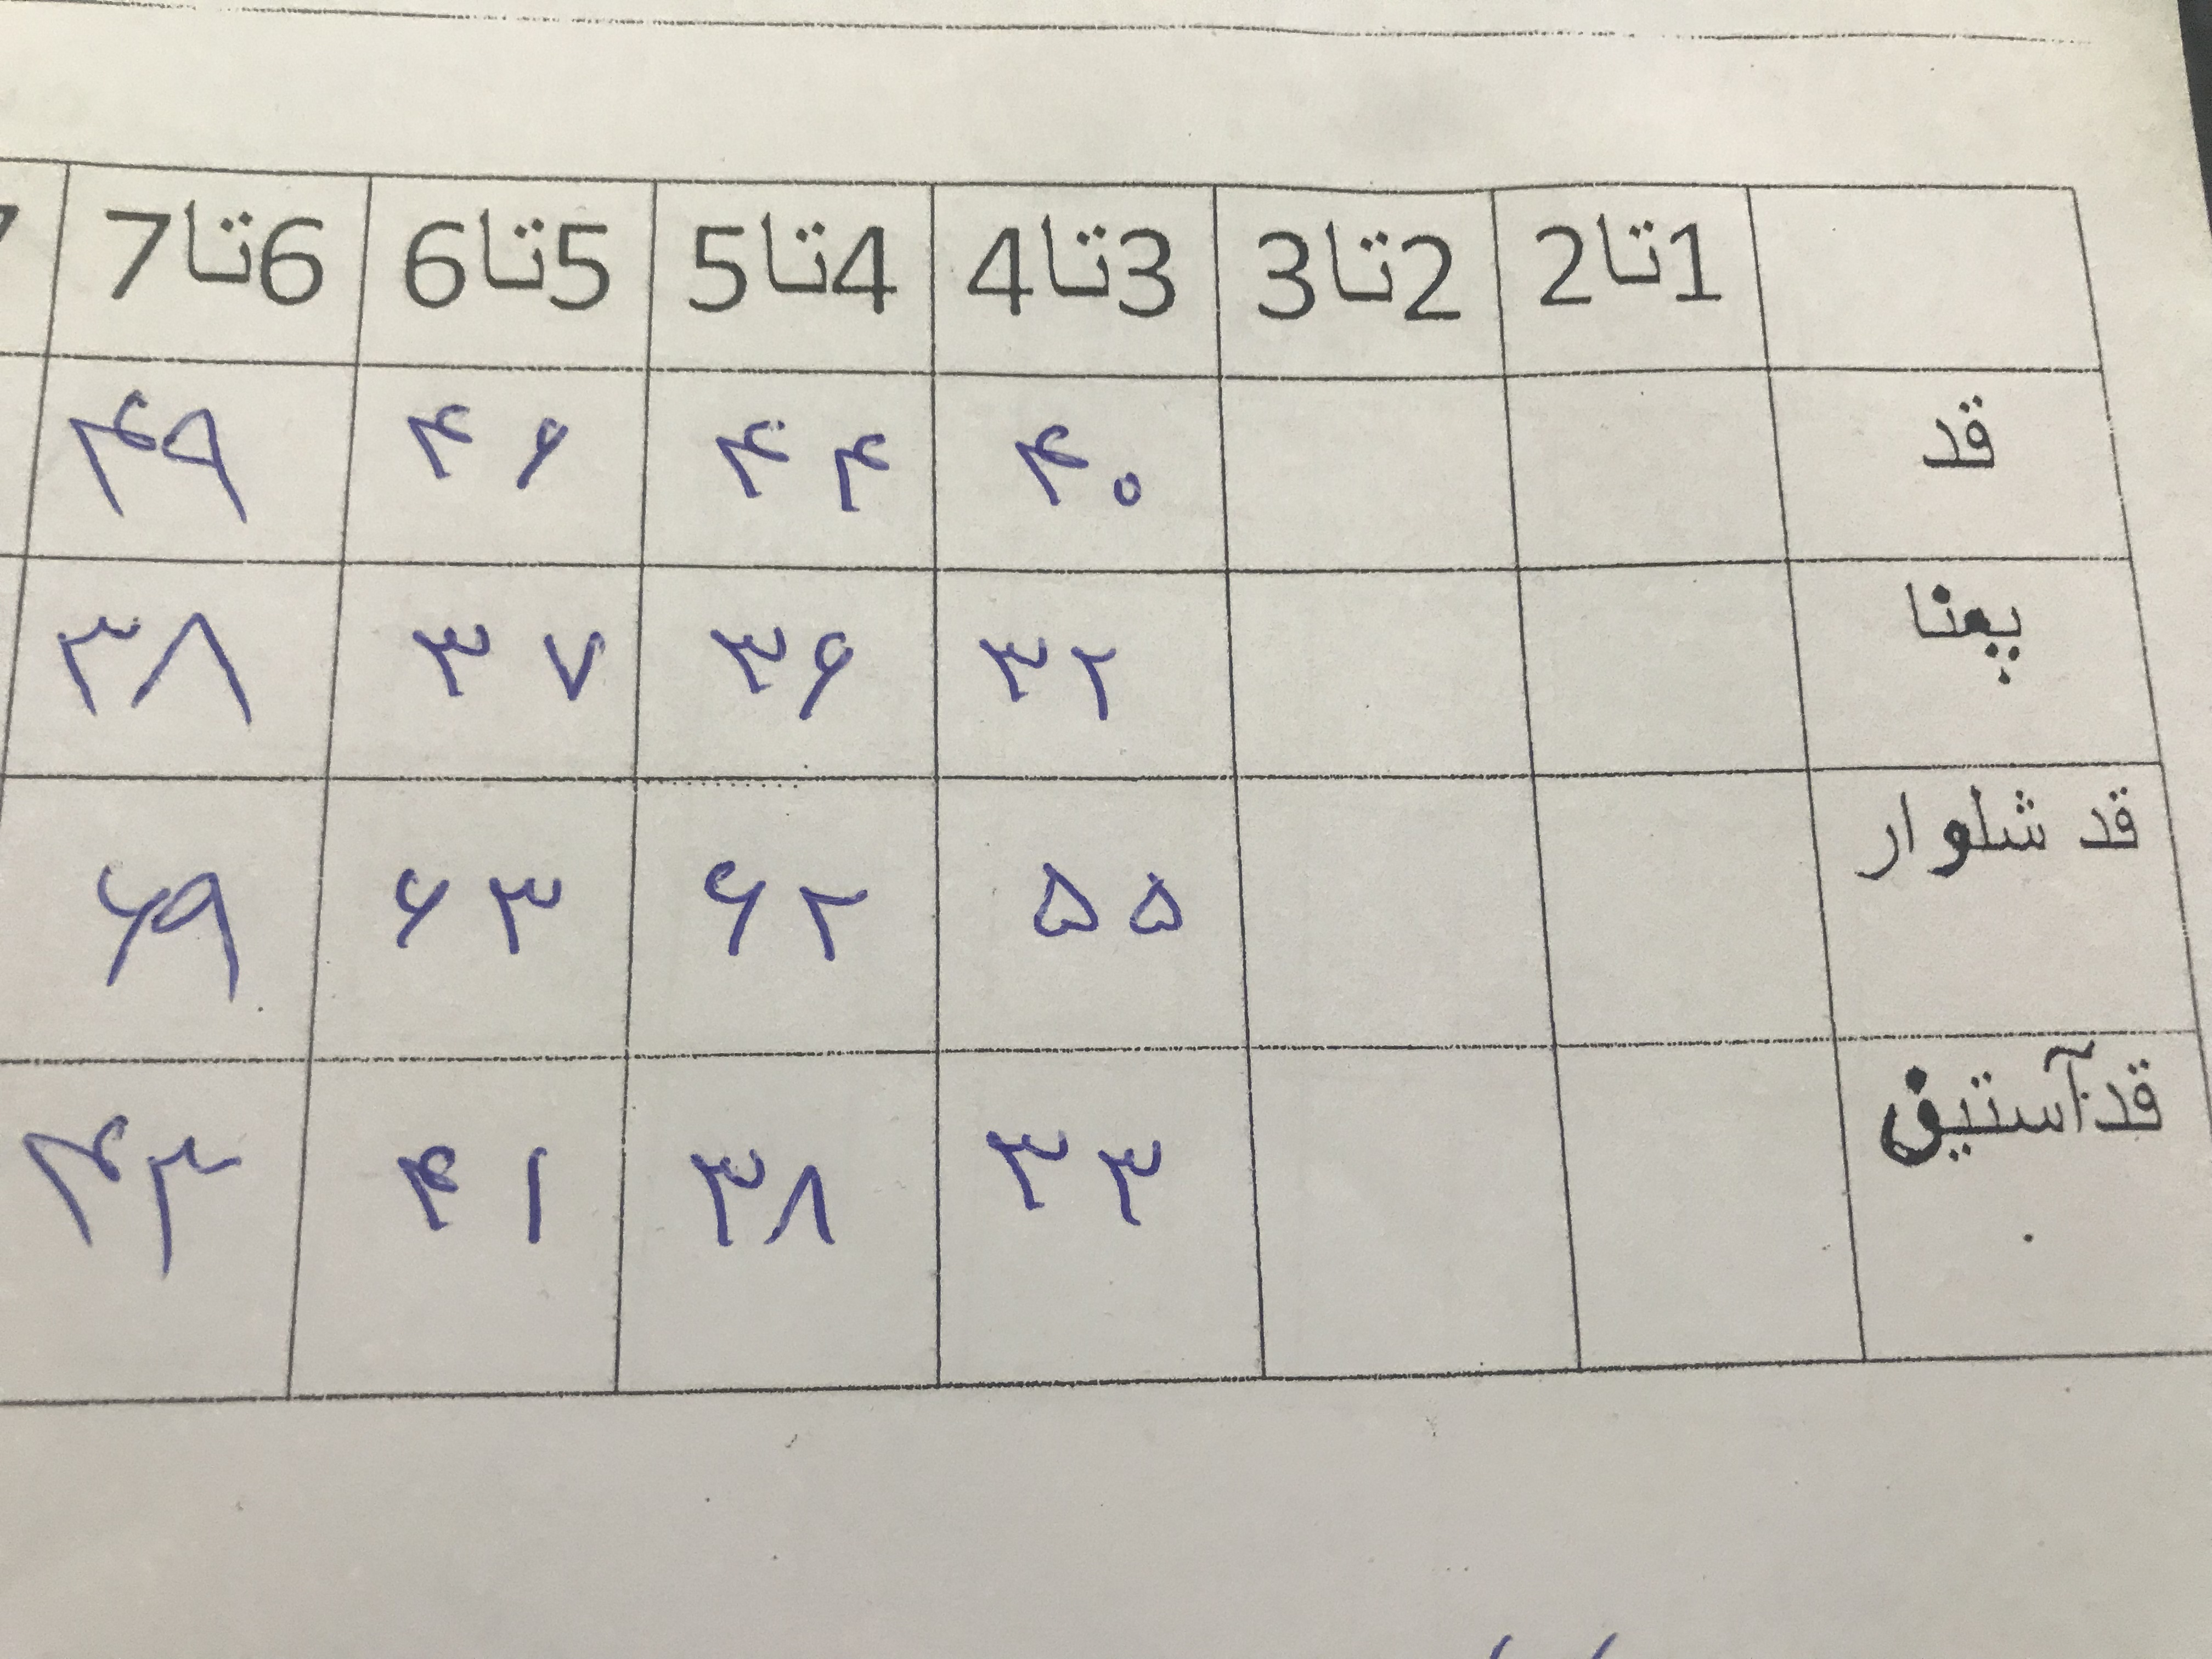 1تا2 2تا3 3تا4 4تا5 5تا6 6تا7 7
قد ۴۰ ۴۴ ۴۶ ۴۹
پهنا ۳۲ ۳۶ ۳۷ ۳۸
قد شلوار ۵۵ ۶۲ ۶۳ ۶۹
قدآستین ۳۳ ۳۸ ۴۱ ۴۳